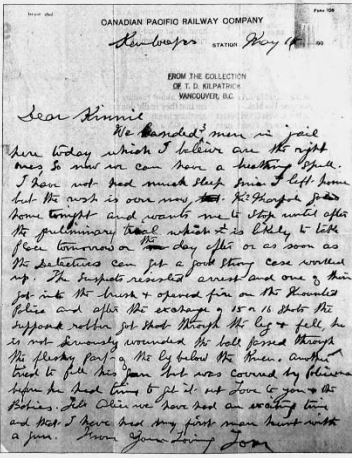 CANADIAN PACIFIC RAILWAY COMPANY
Form 109
Kamloops STATION May 15
FROM THE COLLECTION
OF T. D. KILPATRICK
VANCOUVER, B.C.
Dear Kinnie
We landed 3 men in jail
here today which I believe are the right
ones so now we can have a breathing spell.
I have not had much sleep since I left home
but the rush is over now, Mr Marpole goes
home tonight and wants me to stop until after
the preliminary trial which is likely to take
place tomorrow or the day after or as soon as
the detectives can get a good strong case worked
up. The suspects resisted arrest and one of them
got into the brush & opened fire on the Mounted
Police and after the exchange of 15 or 16 shots the
supposed robber got shot through the leg & fell, he
is not seriously wounded the ball passed through
the fleshy part of the leg below the knee. another
tried to pull his gun but was covered by policeman
before he had time to get it out Love to you & the
Babies. Tell Alice we have had an exciting time
and that I have had my first man hunt with
a gun. From Your Loving Tom